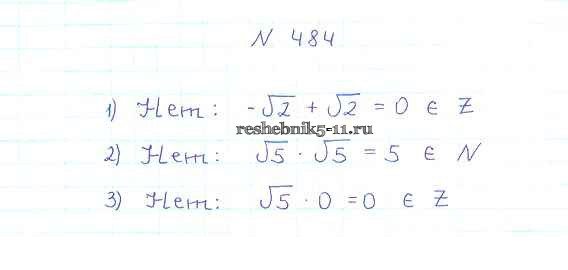 N 484
1) Нет: -√2 + √2 = 0 ∈ Z
reshebnik5-11.ru
2) Нет: √5 · √5 = 5 ∈ N
3) Нет: √5 · 0 = 0 ∈ Z